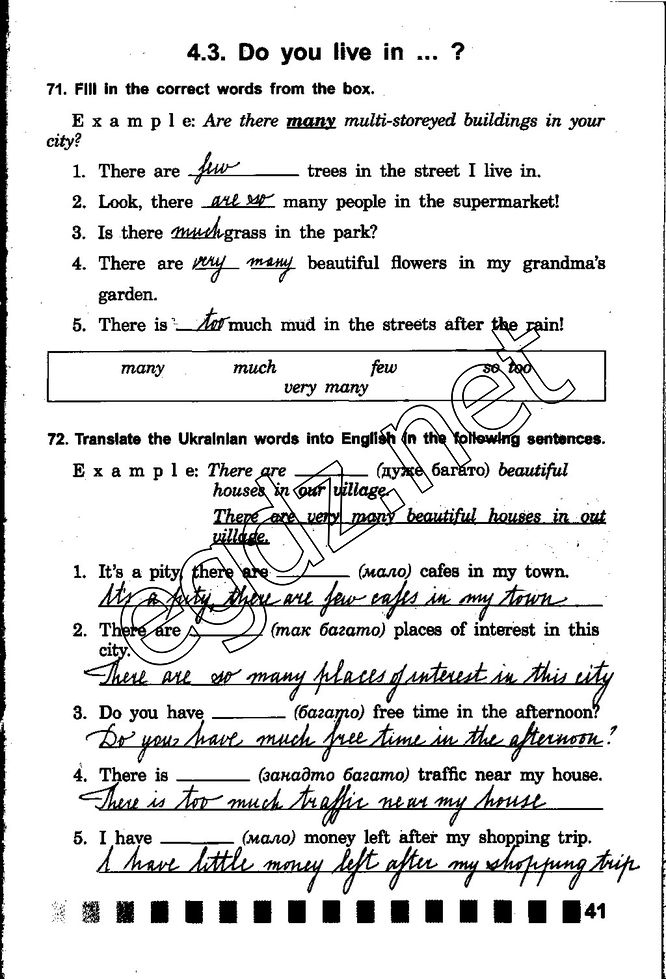 4.3. Do you live in ... ?
71. Fill in the correct words from the box.
E x a m p l e: Are there many multi-storeyed buildings in your
city?
1. There are few trees in the street I live in.
2. Look, there are so many people in the supermarket!
3. Is there much grass in the park?
4. There are very many beautiful flowers in my grandma's
garden.
5. There is too much mud in the streets after the rain!
many much few so too
very many
72. Translate the Ukrainian words into English in the following sentences.
E x a m p l e: There are ________ (дуже багато) beautiful
houses in our village.
There are very many beautiful houses in out
village.
1. It's a pity, there are ________ (мало) cafes in my town.
It's a pity, there are few cafes in my town
2. There are ________ (так багато) places of interest in this
city.
There are so many places of interest in this city
3. Do you have ________ (багато) free time in the afternoon?
Do you have much free time in the afternoon?
4. There is ________ (занадто багато) traffic near my house.
There is too much traffic near my house
5. I have ________ (мало) money left after my shopping trip.
I have little money left after my shopping trip
41
egdz.net